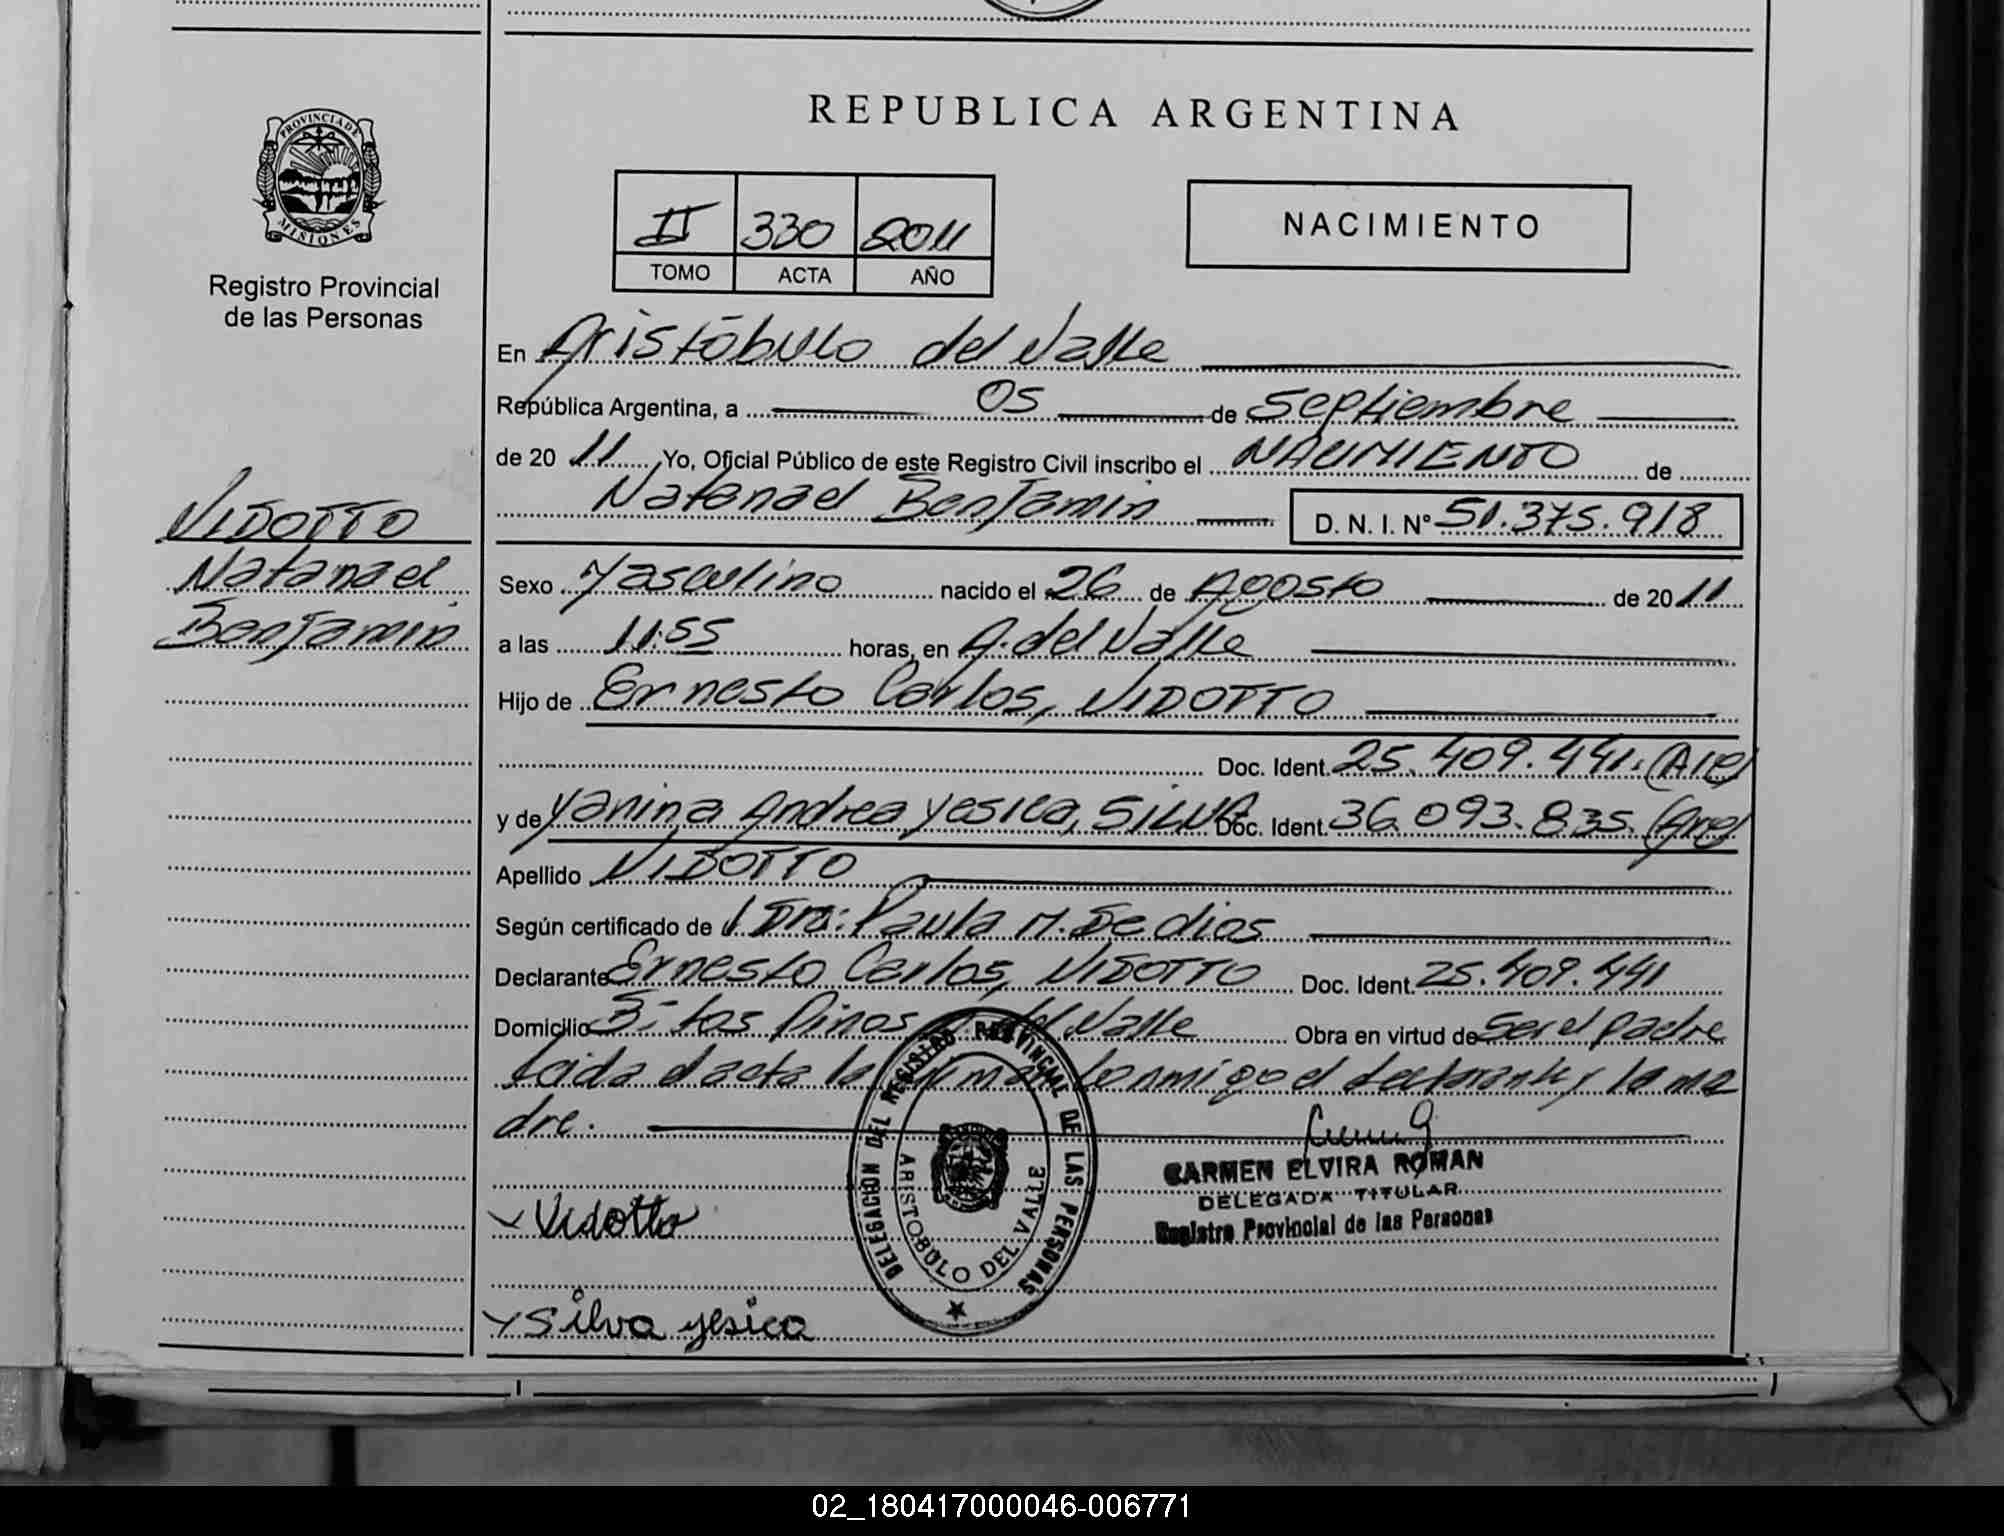 PROVINCIA DE
MISIONES
Registro Provincial
de las Personas
VIDOTTO
Natanael
Benjamin
REPUBLICA ARGENTINA
II 330 2011
TOMO ACTA AÑO
NACIMIENTO
En Aristóbulo del Valle
República Argentina, a 05 de Septiembre
de 20 11 Yo, Oficial Público de este Registro Civil inscribo el NACIMIENTO de
Natanael Benjamin D. N. I. N° 51.375.918
Sexo Masculino nacido el 26 de Agosto de 20 11
a las 11:55 horas, en A. del Valle
Hijo de Ernesto Carlos, VIDOTTO
Doc. Ident. 25.409.441. (Arg)
y de Yanina Andrea Yesica, SILVA Doc. Ident. 36.093.835. (Arg)
Apellido VIDOTTO
Según certificado de Dra: Paula M. De dios
Declarante Ernesto Carlos, VIDOTTO Doc. Ident. 25.409.441
Domicilio B: Los Pinos A. del Valle Obra en virtud de Ser el padre
Leida el acta la firman conmigo el declarante y la ma
dre.
CARMEN ELVIRA ROMAN
DELEGADA TITULAR
Registro Provincial de las Personas
DELEGACION DEL REGISTRO PROVINCIAL DE LAS PERSONAS
ARISTOBULO DEL VALLE
Vidotto
Silva yesica
02_180417000046-006771